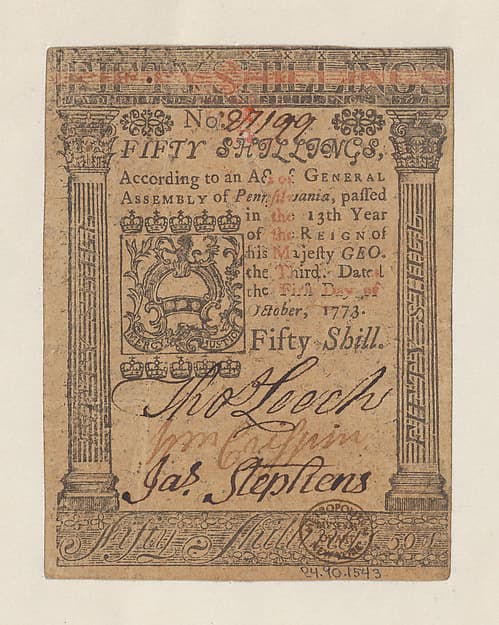 FIFTY SHILLINGS
No. 27199
FIFTY SHILLINGS,
According to an Act of GENERAL
ASSEMBLY of Pennsilvania, passed
in the 13th Year
of the REIGN of
his Majesty GEO.
the Third. Dated
the First Day of
October, 1773.
Fifty Shill.
MERCY JUSTICE
Thos Leech
Wm Crispin
Jas. Stephens
Fifty Shill
50 s
FIFTY SHILLINGS
METROPOLITAN
MUSEUM
OF ART
NEW YORK
24.90.1543